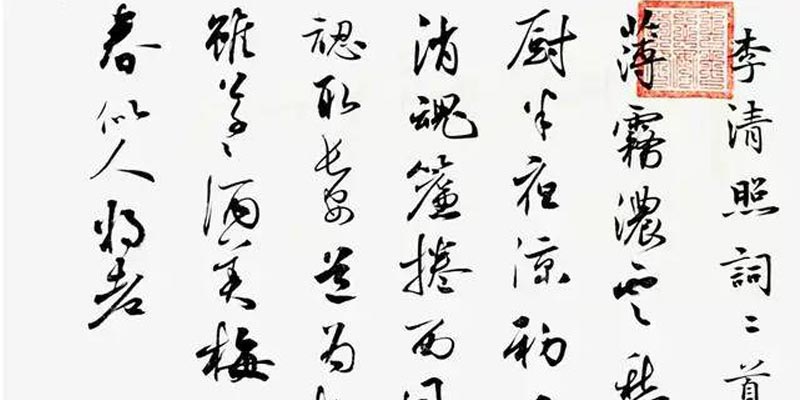 李清照詞二首
薄霧濃雲愁
厨半夜涼初
消魂簾捲西
認取長安道為
雖草草酒美梅
春似人將老